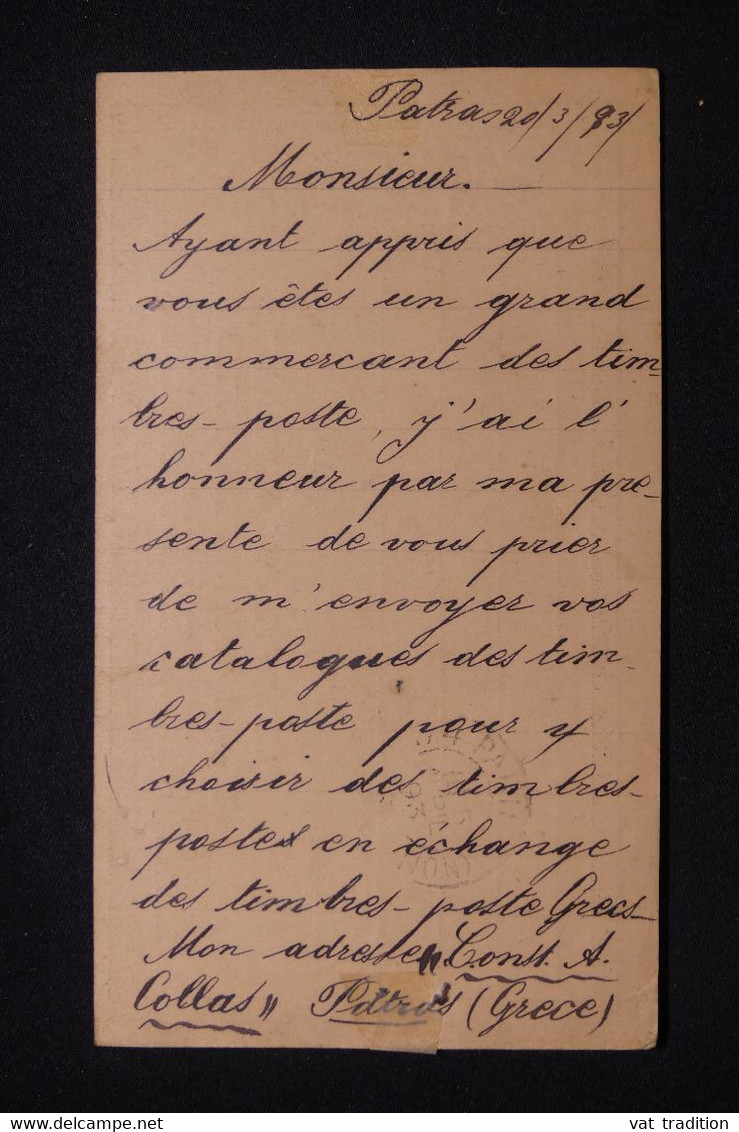 Patras 20/3/93/
Monsieur.
Ayant appris que
vous êtes un grand
commercant des tim-
bres-poste, j'ai l'
honneur par ma pre-
sente de vous prier
de m'envoyer vos
catalogues des tim-
bres-poste pour y
choisir des timbres-
postes en échange
des timbres-poste Grecs-
Mon adresse „Const. A.
Collas„ Patras (Grece)
vat tradition